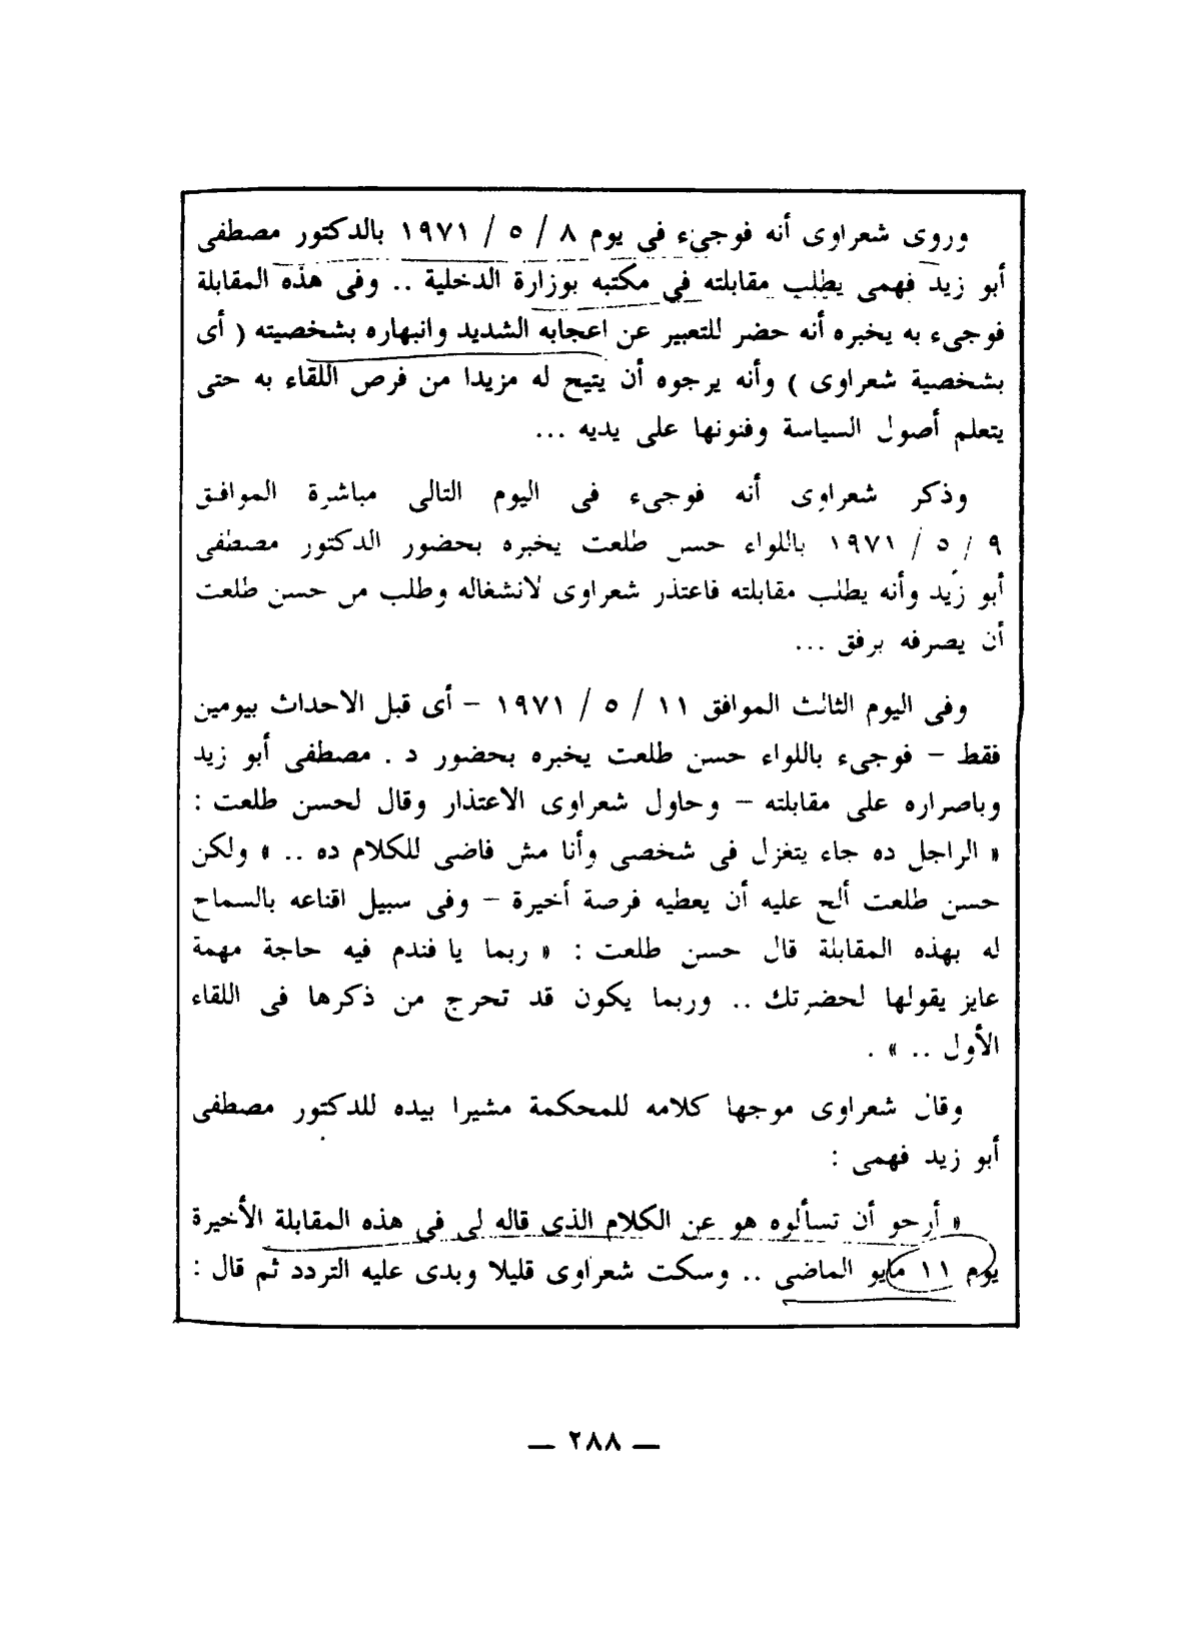 وروى شعراوى أنه فوجىء فى يوم ٨ / ٥ / ١٩٧١ بالدكتور مصطفى
أبو زيد فهمى يطلب مقابلته فى مكتبه بوزارة الدخلية .. وفى هذه المقابلة
فوجىء به يخبره أنه حضر للتعبير عن اعجابه الشديد وانبهاره بشخصيته ( أى
بشخصية شعراوى ) وأنه يرجوه أن يتيح له مزيدا من فرص اللقاء به حتى
يتعلم أصول السياسة وفنونها على يديه ...
وذكر شعراوى أنه فوجىء فى اليوم التالى مباشرة الموافق
٩ / ٥ / ١٩٧١ باللواء حسن طلعت يخبره بحضور الدكتور مصطفى
أبو زيد وأنه يطلب مقابلته فاعتذر شعراوى لانشغاله وطلب من حسن طلعت
أن يصرفه برفق ...
وفى اليوم الثالث الموافق ١١ / ٥ / ١٩٧١ – أى قبل الاحداث بيومين
فقط – فوجىء باللواء حسن طلعت يخبره بحضور د . مصطفى أبو زيد
وباصراره على مقابلته – وحاول شعراوى الاعتذار وقال لحسن طلعت :
« الراجل ده جاء يتغزل فى شخصى وأنا مش فاضى للكلام ده .. » ولكن
حسن طلعت ألح عليه أن يعطيه فرصة أخيرة – وفى سبيل اقناعه بالسماح
له بهذه المقابلة قال حسن طلعت : « ربما يا فندم فيه حاجة مهمة
عايز يقولها لحضرتك .. وربما يكون قد تحرج من ذكرها فى اللقاء
الأول .. » .
وقال شعراوى موجها كلامه للمحكمة مشيرا بيده للدكتور مصطفى
أبو زيد فهمى :
« أرجو أن تسألوه هو عن الكلام الذى قاله لى فى هذه المقابلة الأخيرة
يوم ١١ مايو الماضى .. وسكت شعراوى قليلا وبدى عليه التردد ثم قال :
— ٢٨٨ —